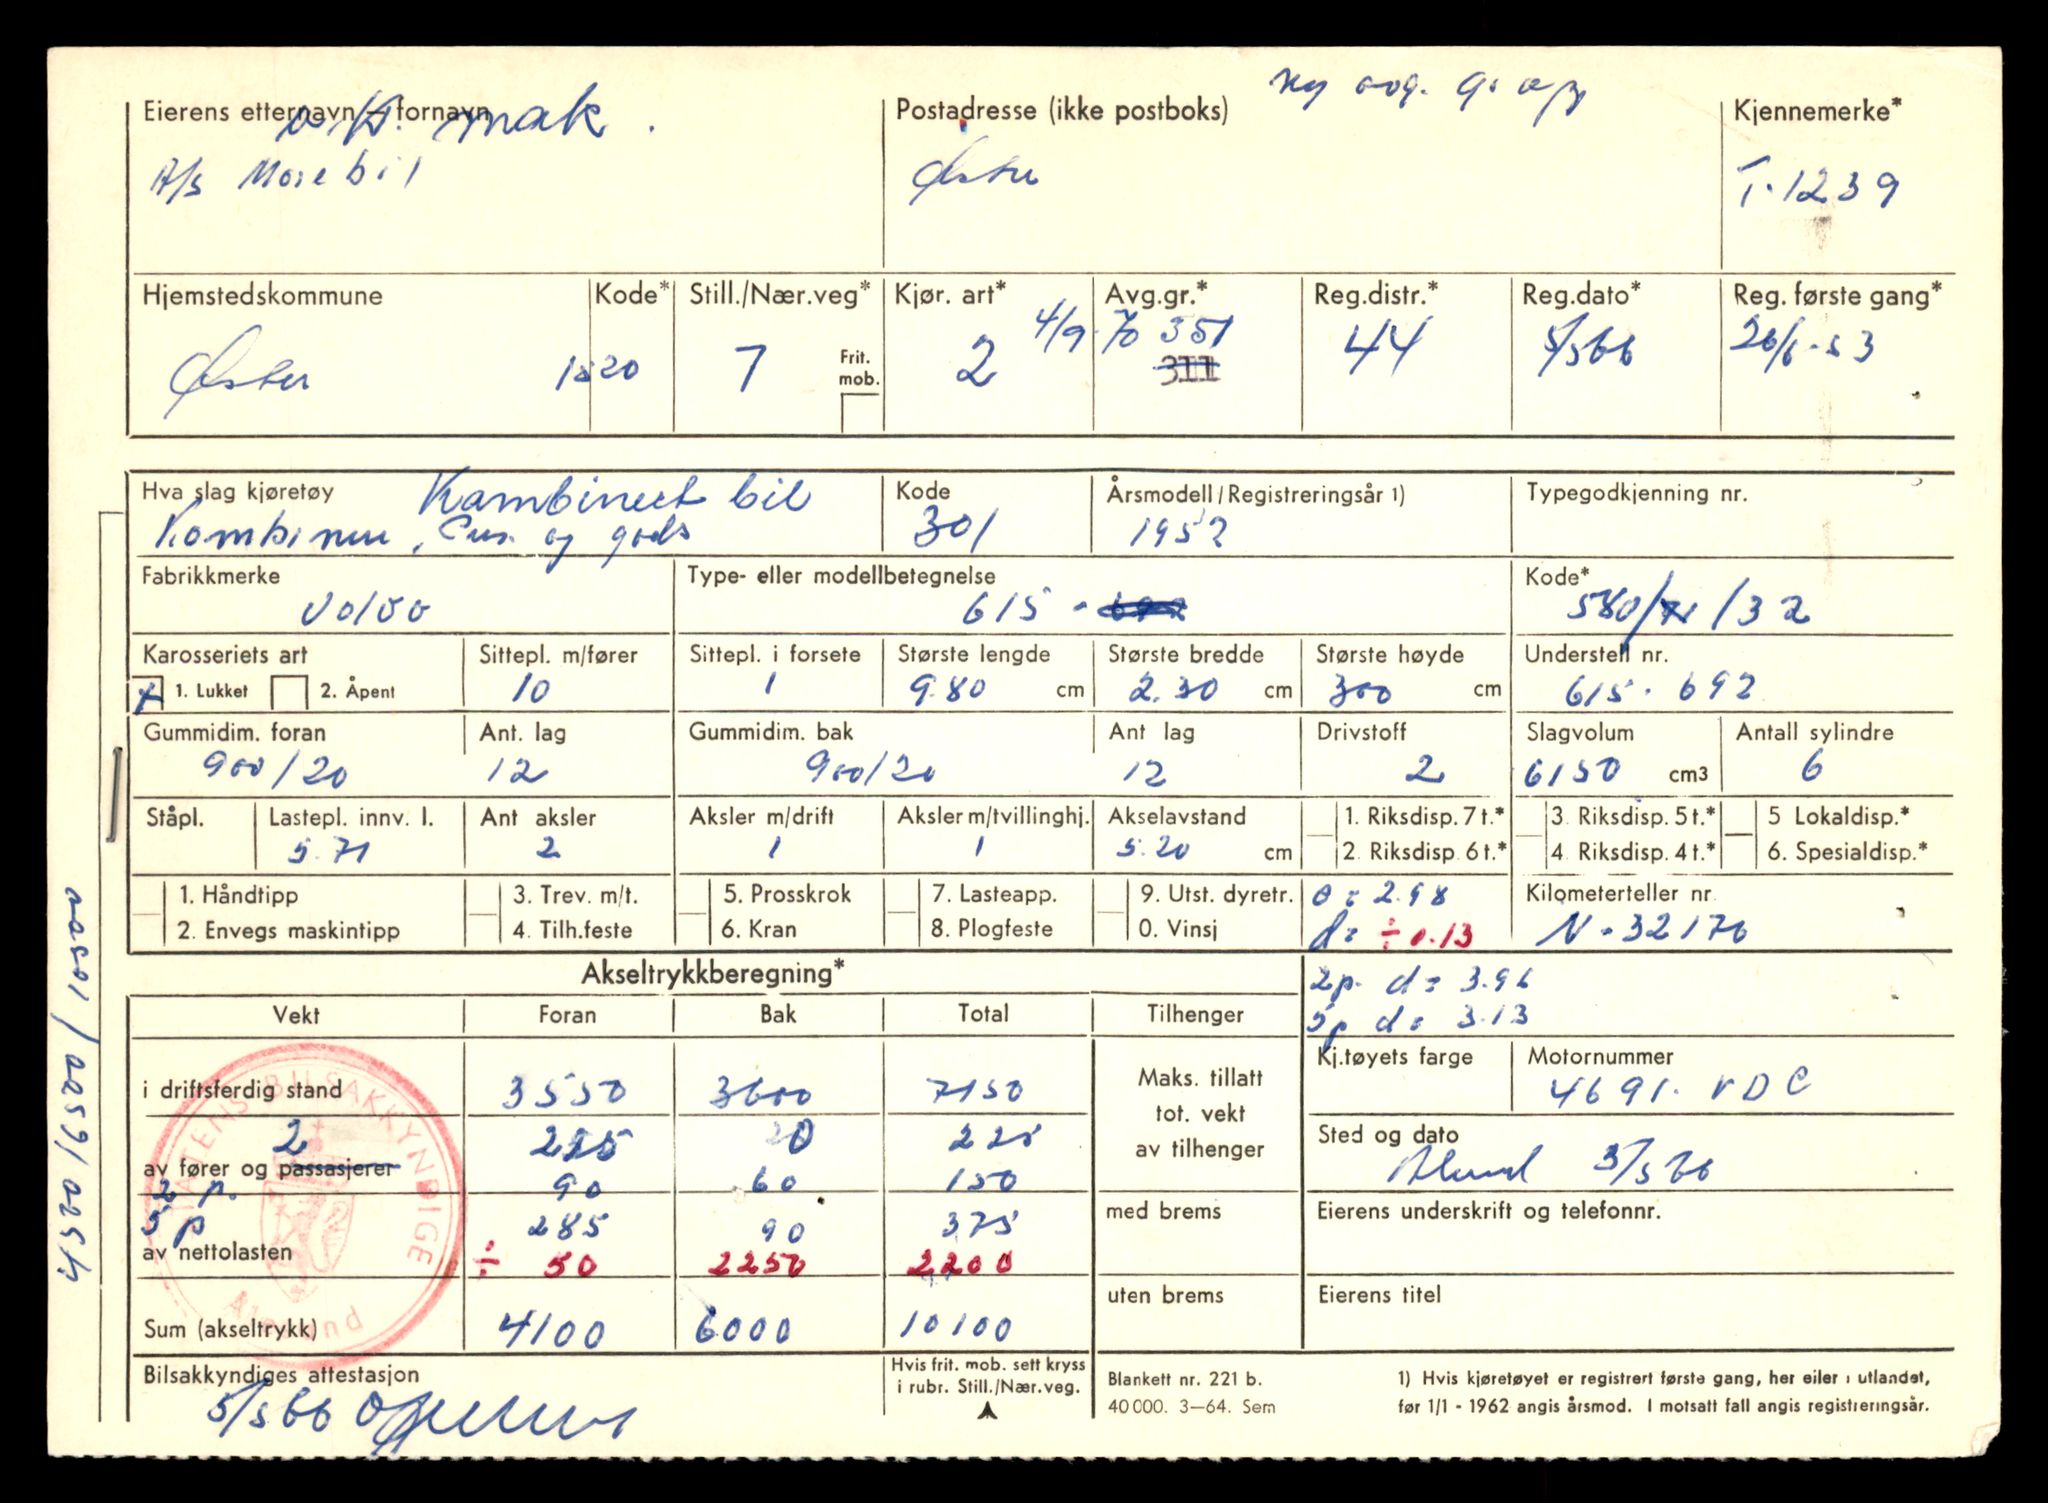 Eierens etternavn – fornavn
Postadresse (ikke postboks)
Kjennemerke*
A/s Mørebil
T-1239
Hjemstedskommune
Kode*
Still./Nær.veg*
Kjør. art*
Avg.gr.*
Reg.distr.*
Reg.dato*
Reg. første gang*
4/9-70 351
1520
7
Frit. mob.
2
311
44
5/5 66
26/6-53
Hva slag kjøretøy
Kombinert bil
Kode
Årsmodell/Registreringsår 1)
Typegodkjenning nr.
og gods
301
1952
Fabrikkmerke
Type- eller modellbetegnelse
Kode*
Volvo
615 -
580/ /32
Karosseriets art
Sittepl. m/fører
Sittepl. i forsete
Største lengde
Største bredde
Største høyde
Understell nr.
x 1. Lukket
2. Åpent
10
1
9.80 cm
2.30 cm
300 cm
615 - 692
Gummidim. foran
Ant. lag
Gummidim. bak
Ant lag
Drivstoff
Slagvolum
Antall sylindre
900/20
12
900/20
12
2
6150 cm3
6
Ståpl.
Lastepl. innv. l.
Ant aksler
Aksler m/drift
Aksler m/tvillinghj.
Akselavstand
1. Riksdisp. 7 t.*
3. Riksdisp. 5 t.*
5 Lokaldisp.*
5.71
2
1
1
5.20 cm
2. Riksdisp. 6 t.*
4. Riksdisp. 4 t.*
6. Spesialdisp.*
1. Håndtipp
3. Trev. m/t.
5. Prosskrok
7. Lasteapp.
9. Utst. dyretr.
= 2.98
Kilometerteller nr.
2. Envegs maskintipp
4. Tilh.feste
6. Kran
8. Plogfeste
0. Vinsj
d = ÷ 0.13
N - 32170
Akseltrykkberegning*
2p. d = 3.96
5p d = 3.13
Vekt
Foran
Bak
Total
Tilhenger
Kj.tøyets farge
Motornummer
i driftsferdig stand
3550
3600
7150
Maks. tillatt tot. vekt av tilhenger
4691. VDC
2
av fører og passasjerer
20
225
Sted og dato
3/5 66
2 p.
90
60
150
5 p
285
90
375
med brems
Eierens underskrift og telefonnr.
av nettolasten
÷ 50
2250
2200
uten brems
Eierens titel
Sum (akseltrykk)
4100
6000
10100
STATENS BILSAKKYNDIGE
Ålesund
Bilsakkyndiges attestasjon
5/5 66
Hvis frit. mob. sett kryss
i rubr. Still./Nær.veg.
Blankett nr. 221 b.
40 000. 3—64. Sem
1) Hvis kjøretøyet er registrert første gang, her eller i utlandet,
før 1/1 - 1962 angis årsmod. I motsatt fall angis registreringsår.